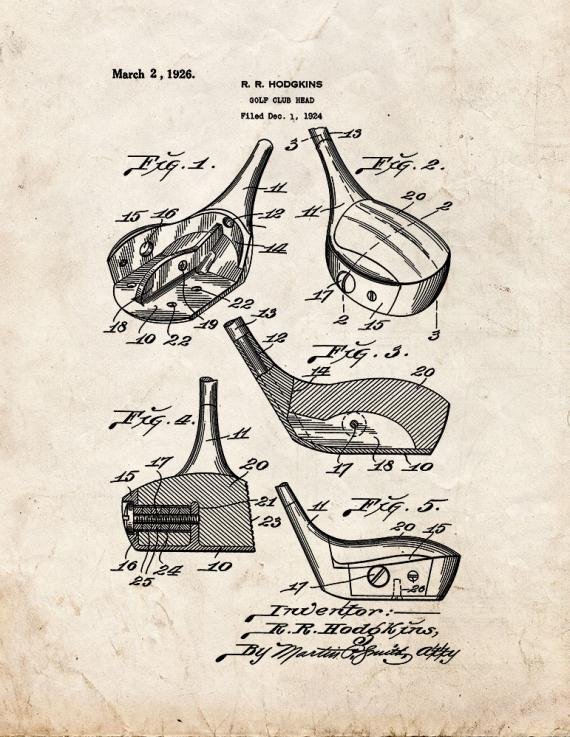 March 2, 1926.
R. R. HODGKINS
GOLF CLUB HEAD
Filed Dec. 1, 1924
Fig. 1.
3 13
Fig. 2.
11
20
2
15 16
12
11
14
17
22
18
10
22
19
2
15
3
13
12
Fig. 3.
14
20
Fig. 4.
11
17
18
10
17
20
15
21
23
Fig. 5.
11
20
15
16
24
10
25
17
26
Inventor:
R. R. Hodgkins,
By Martin P. Smith, Atty